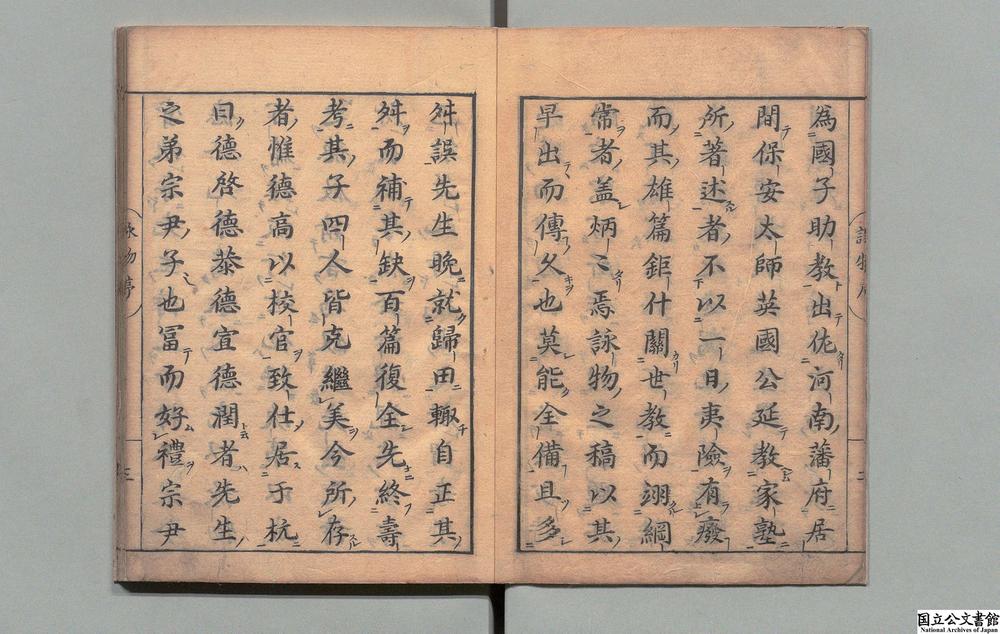 為國子助教出佐河南藩府居
間保安太師英國公延教家塾
所著述者不以一日夷險有廢
而其雄篇鉅什關世教而翊綱
常者盖炳〻焉詠物之稿以其
早出而傳久也莫能全備且多
舛誤先生晚就歸田輙自正其
舛而補其缺百篇復全先終壽
考其子四人皆克繼美今所存
者惟德高以校官致仕居于杭
曰德啓德㳟德宣德潤者先生
之弟宗尹子也冨而好禮宗尹
国立公文書館
National Archives of Japan